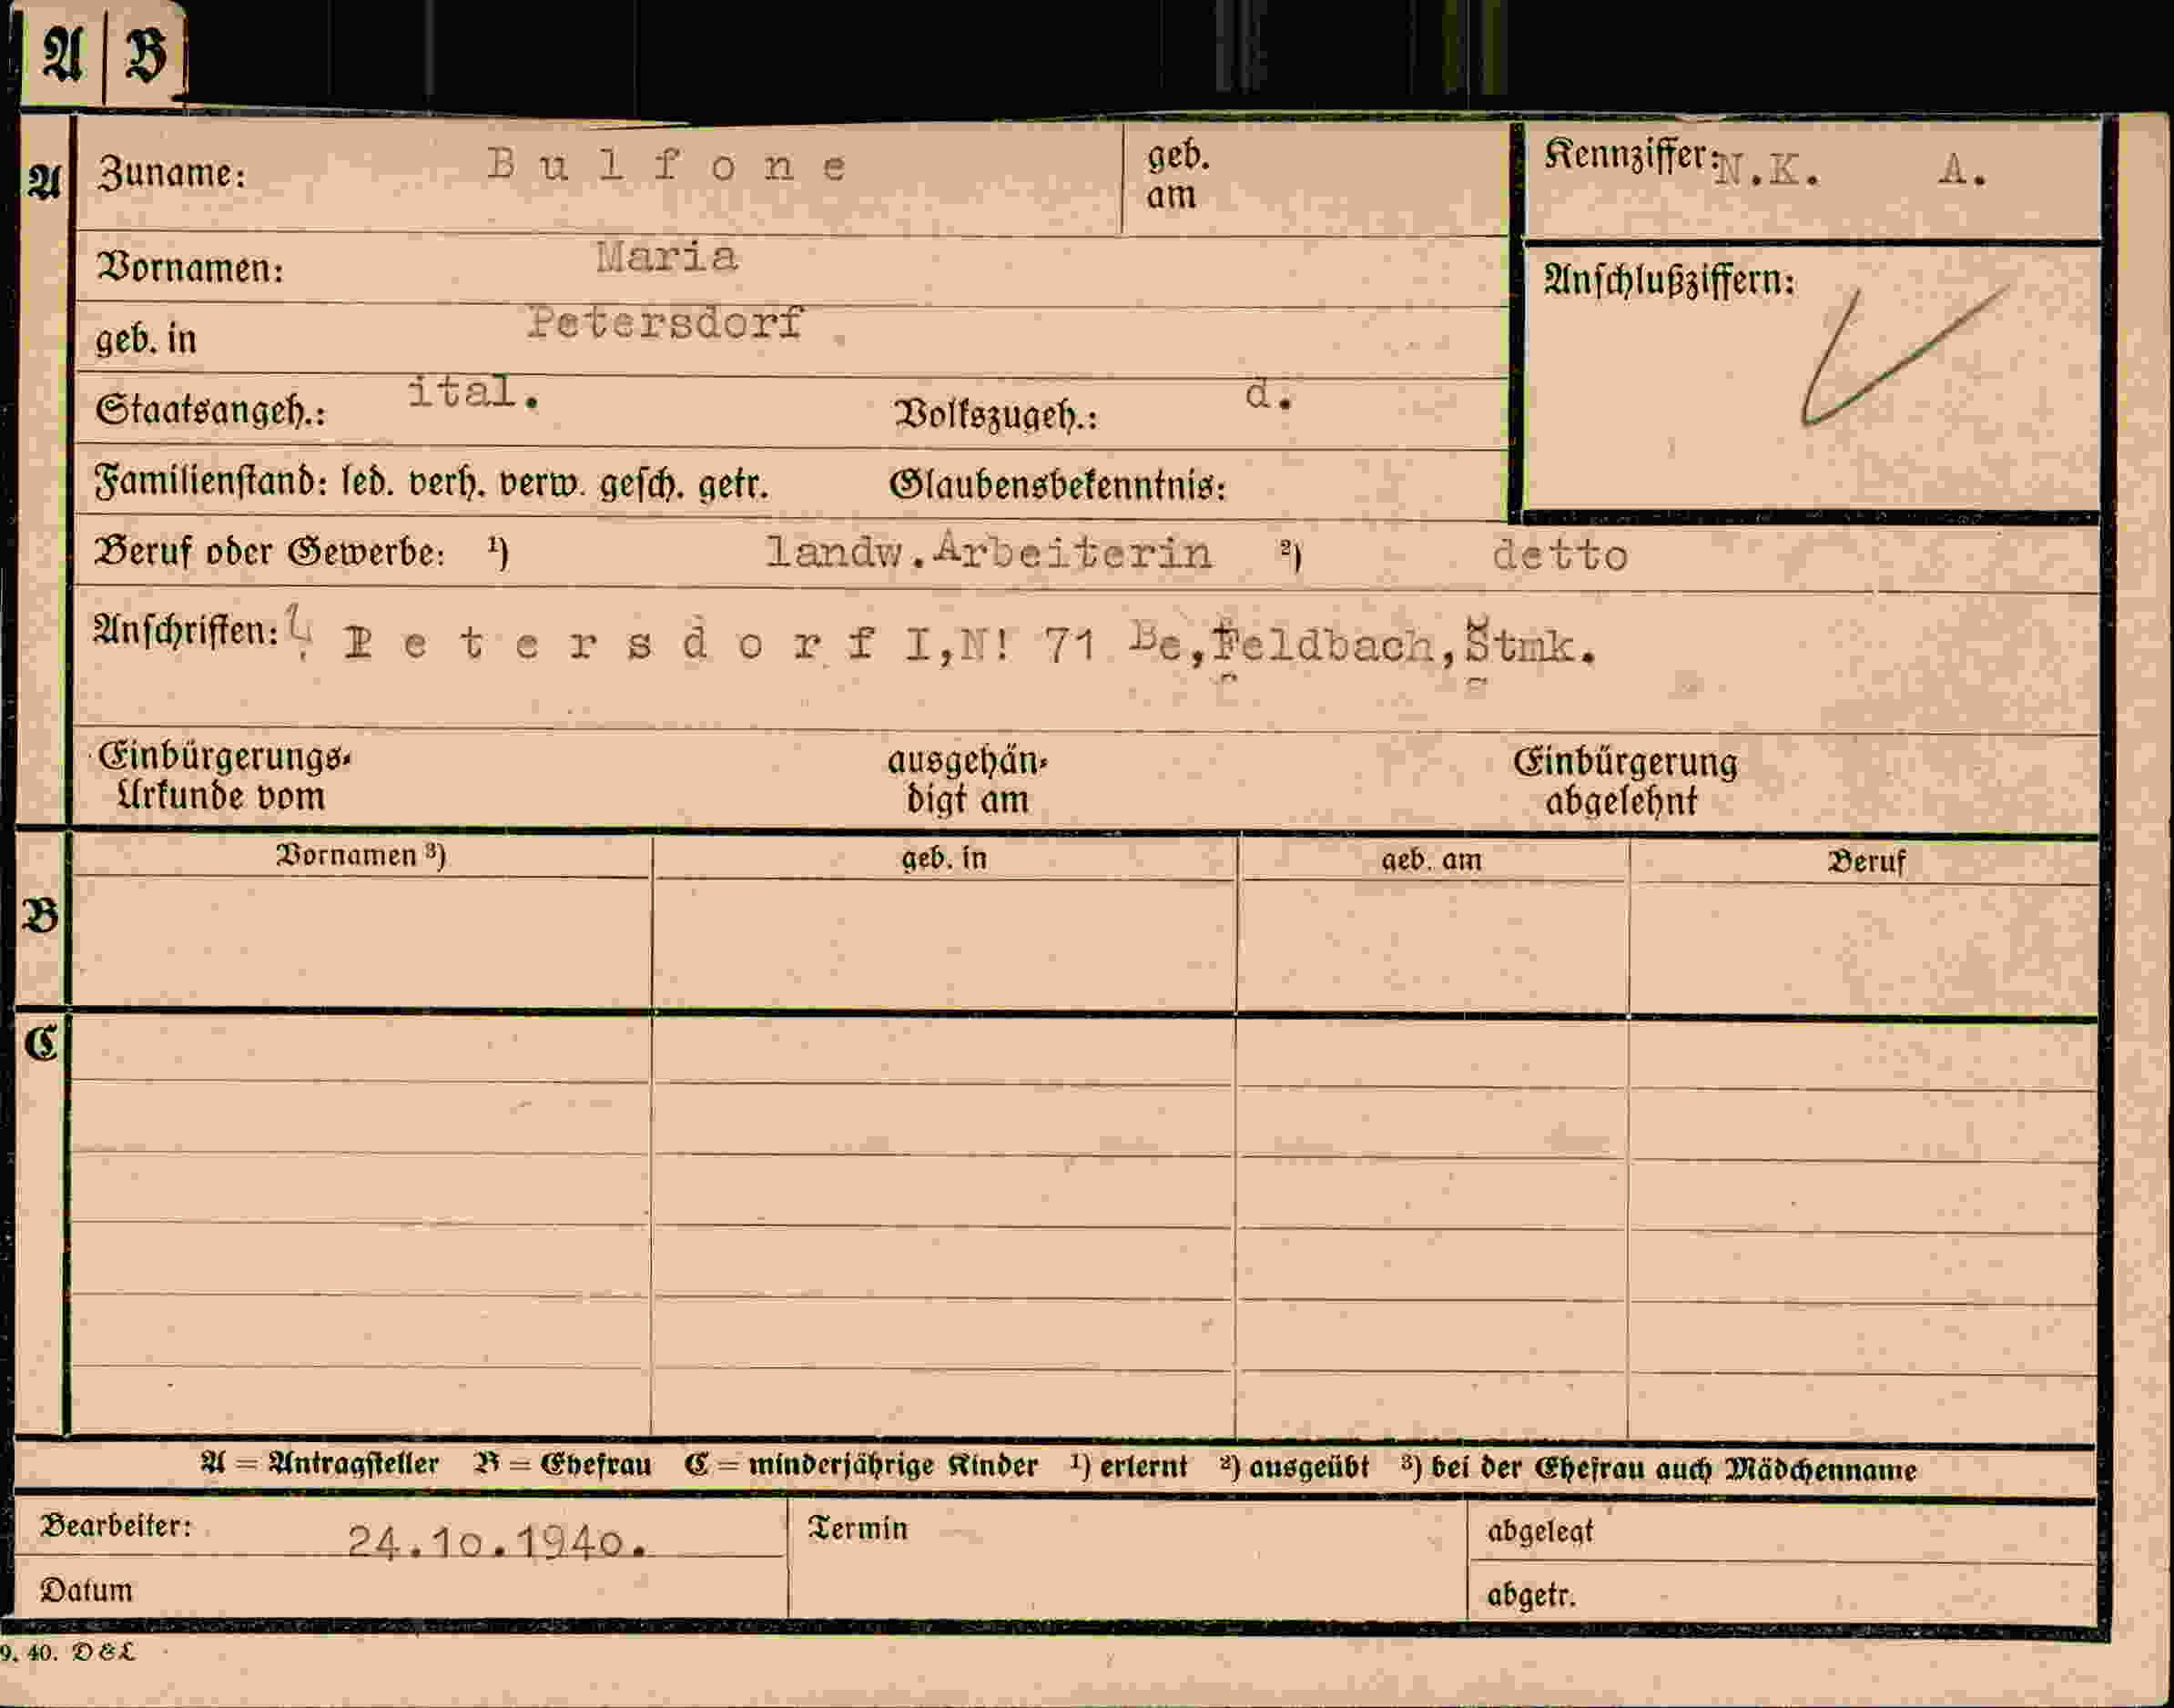 A B
A Zuname: Bulfone geb. am Kennziffer: N.K. A.
Vornamen: Maria
Anschlußziffern:
geb. in Petersdorf
Staatsangeh.: ital. Volkszugeh.: d.
Familienstand: led. verh. verw. gesch. getr. Glaubensbekenntnis:
Beruf oder Gewerbe: ¹) landw.Arbeiterin ²) detto
Anschriften: Petersdorf I,N! 71 Be,Feldbach,Stmk.
Einbürgerungs-Urkunde vom ausgehän-digt am Einbürgerung abgelehnt
B Vornamen ³) geb. in geb. am Beruf
C
A = Antragsteller B = Ehefrau C = minderjährige Kinder ¹) erlernt ²) ausgeübt ³) bei der Ehefrau auch Mädchenname
Bearbeiter: 24.10.1940. Termin abgelegt
Datum abgetr.
9. 40. D&L